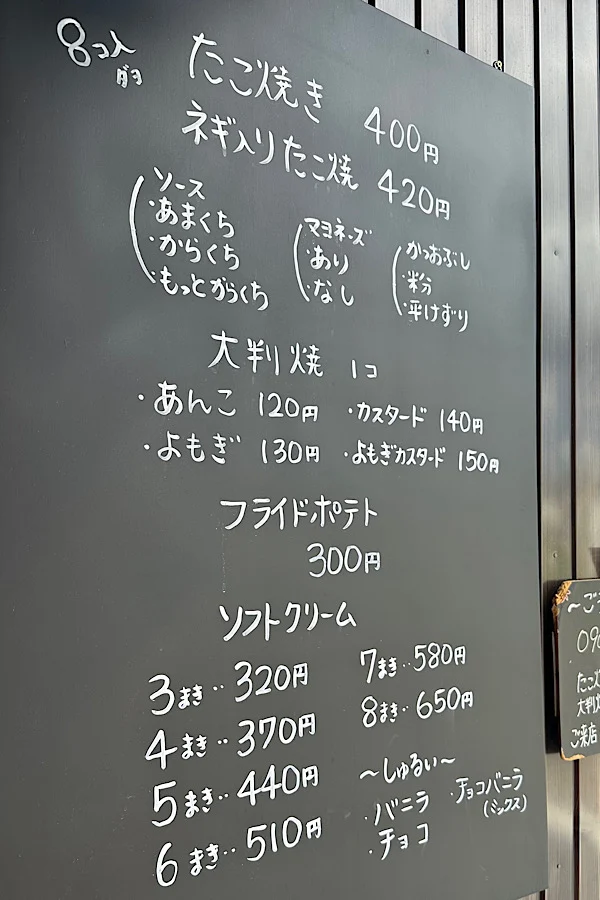 8コ入
ダヨ
たこ焼き 400円
ネギ入りたこ焼 420円
ソース
・あまくち
・からくち
・もっとからくち
マヨネーズ
・あり
・なし
かつおぶし
・粉分
・平けずり
大判焼 1コ
・あんこ 120円 ・カスタード 140円
・よもぎ 130円 ・よもぎカスタード 150円
フライドポテト
300円
ソフトクリーム
3まき‥320円
4まき‥370円
5まき‥440円
6まき‥510円
7まき‥580円
8まき‥650円
〜しゅるい〜
・バニラ ・チョコバニラ
(ミックス)
・チョコ
〜ご
090
たこ
大判
ご来店